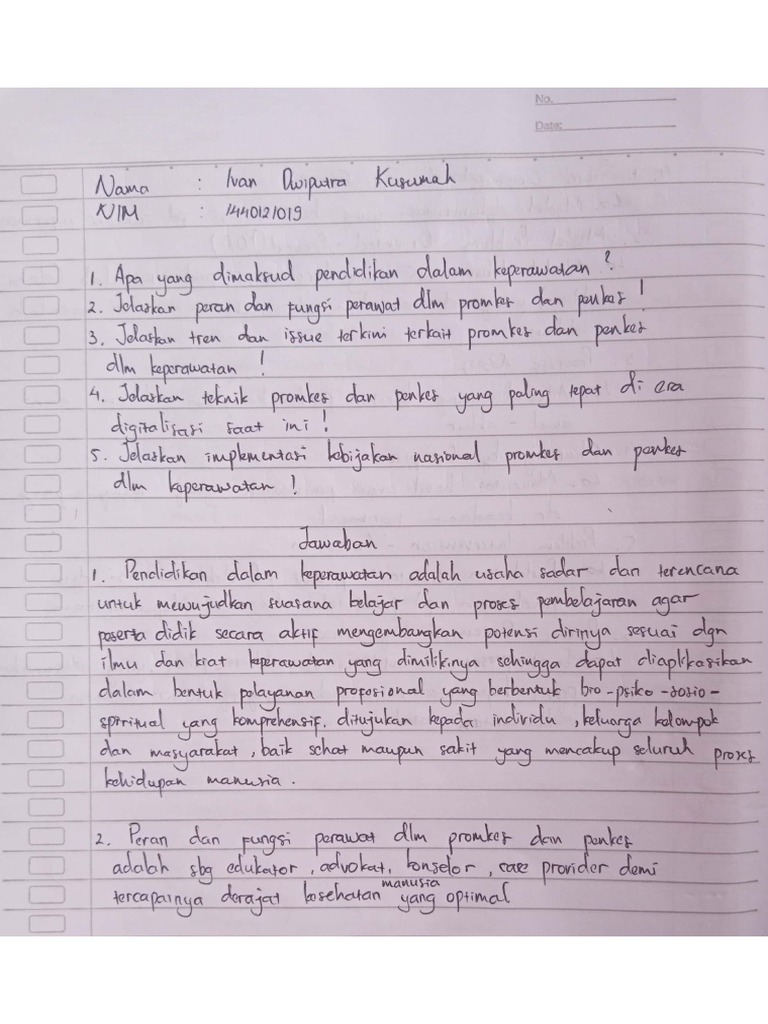 No.
Date:
Nama : Ivan Dwiputra Kusumah
NIM : 1440121019
1. Apa yang dimaksud pendidikan dalam keperawatan ?
2. Jelaskan peran dan fungsi perawat dlm promkes dan penkes !
3. Jelaskan tren dan issue terkini terkait promkes dan penkes
dlm keperawatan !
4. Jelaskan teknik promkes dan penkes yang paling tepat di era
digitalisasi saat ini !
5. Jelaskan implementasi kebijakan nasional promkes dan penkes
dlm keperawatan !
Jawaban
1. Pendidikan dalam keperawatan adalah usaha sadar dan terencana
untuk mewujudkan suasana belajar dan proses pembelajaran agar
peserta didik secara aktif mengembangkan potensi dirinya sesuai dgn
ilmu dan kiat keperawatan yang dimilikinya sehingga dapat diaplikasikan
dalam bentuk pelayanan profesional yang berbentuk bio-psiko-sosio-
spiritual yang komprehensif. ditujukan kepada individu, keluarga kelompok
dan masyarakat, baik sehat maupun sakit yang mencakup seluruh proses
kehidupan manusia.
2. Peran dan fungsi perawat dlm promkes dan penkes
adalah sbg edukator, advokat, konselor, care provider demi
tercapainya derajat kesehatan manusia yang optimal